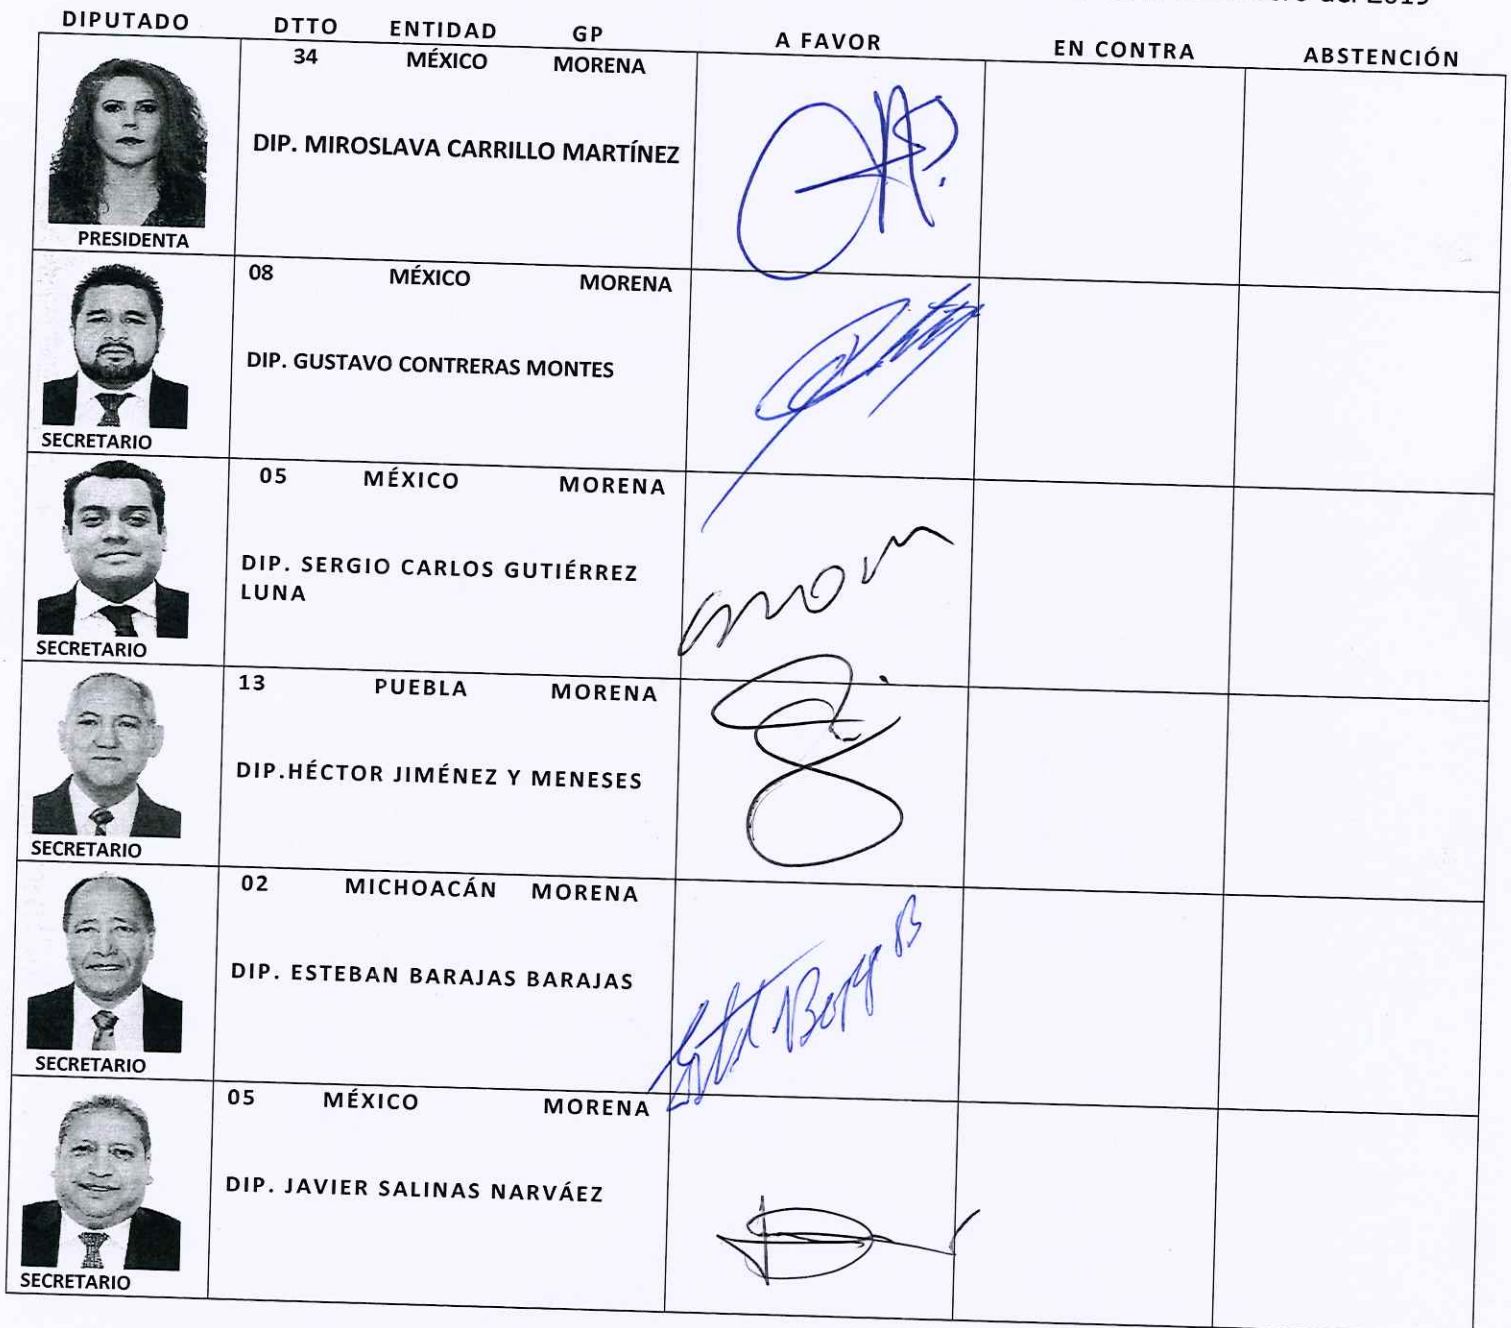 del 2019
DIPUTADO DTTO ENTIDAD GP A FAVOR EN CONTRA ABSTENCIÓN
34 MÉXICO MORENA
DIP. MIROSLAVA CARRILLO MARTÍNEZ
PRESIDENTA
08 MÉXICO MORENA
DIP. GUSTAVO CONTRERAS MONTES
SECRETARIO
05 MÉXICO MORENA
DIP. SERGIO CARLOS GUTIÉRREZ
LUNA
SECRETARIO
13 PUEBLA MORENA
DIP.HÉCTOR JIMÉNEZ Y MENESES
SECRETARIO
02 MICHOACÁN MORENA
DIP. ESTEBAN BARAJAS BARAJAS
SECRETARIO
05 MÉXICO MORENA
DIP. JAVIER SALINAS NARVÁEZ
SECRETARIO